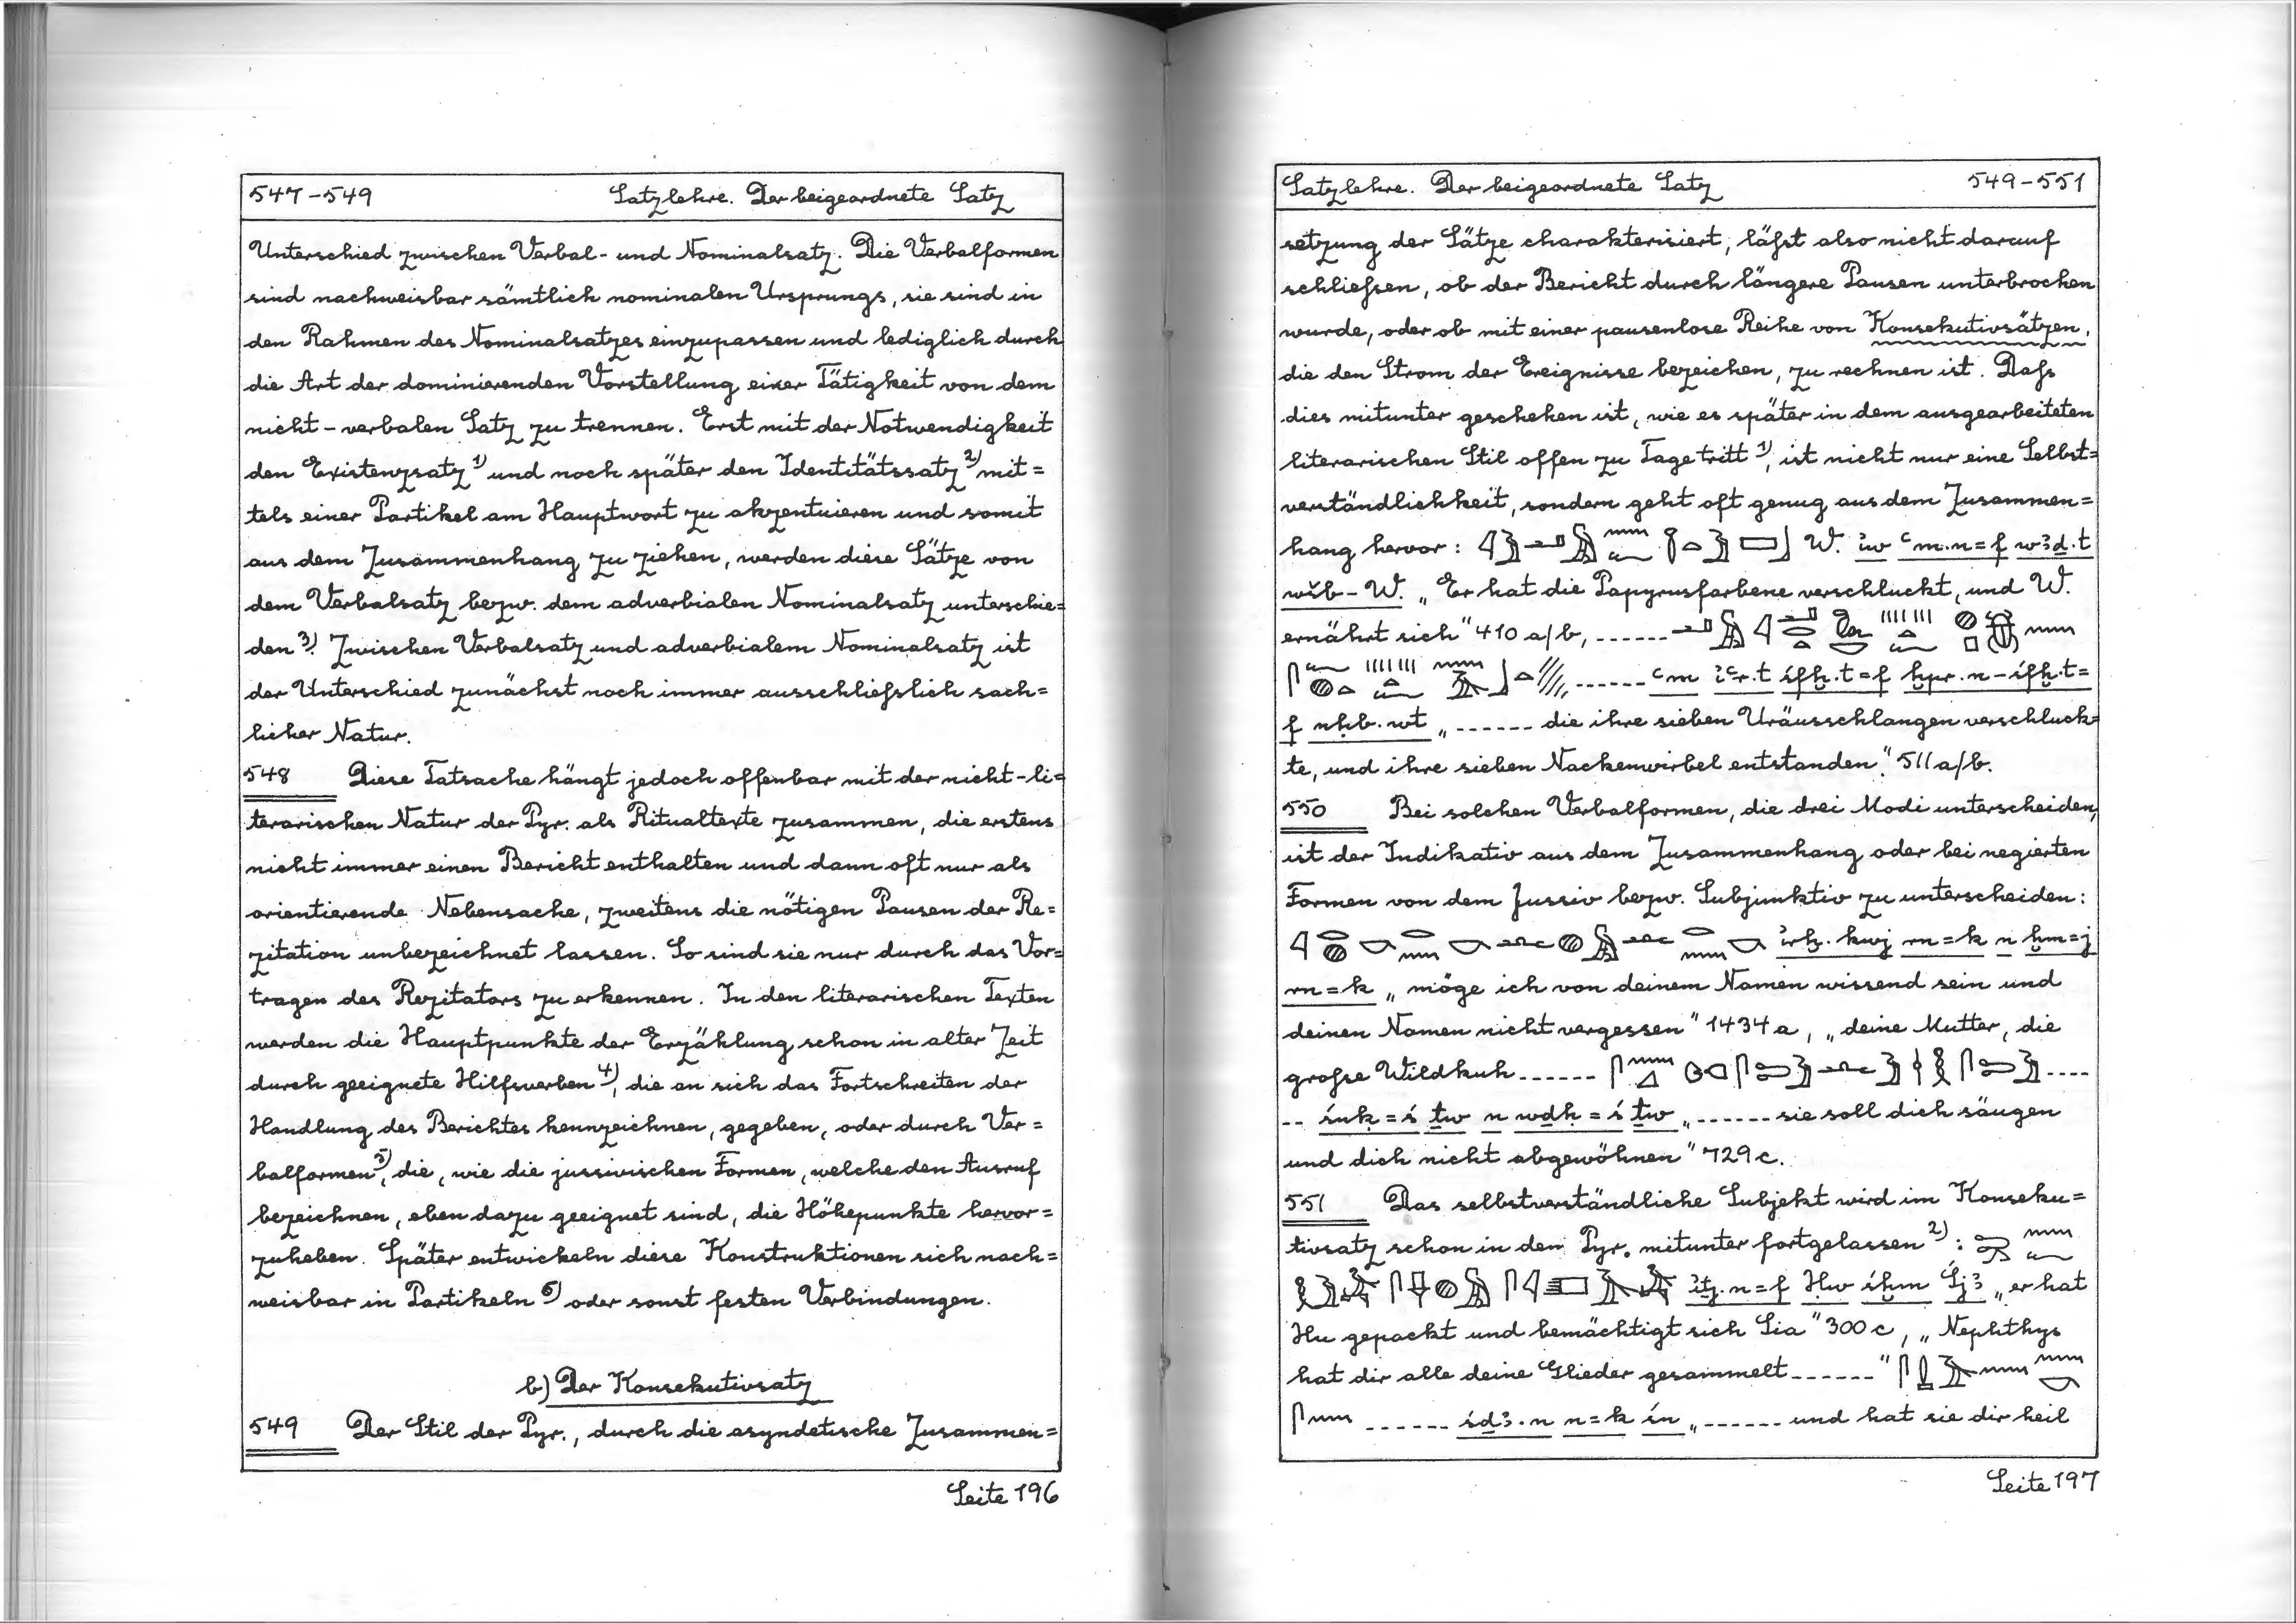 547-549 Satzlehre. Der beigeordnete Satz
Unterschied zwischen Verbal- und Nominalsatz. Die Verbalformen
sind nachweisbar sämtlich nominalen Ursprungs, sie sind in
den Rahmen des Nominalsatzes einzupassen und lediglich durch
die Art der dominierenden Vorstellung einer Tätigkeit von dem
nicht-verbalen Satz zu trennen. Erst mit der Notwendigkeit
den Existenzsatz 1) und noch später den Identitätssatz 2) mit=
tels einer Partikel am Hauptwort zu akzentuieren und somit
aus dem Zusammenhang zu ziehen, werden diese Sätze von
dem Verbalsatz bezw. dem adverbialen Nominalsatz unterschie=
den 3). Zwischen Verbalsatz und adverbialem Nominalsatz ist
der Unterschied zunächst noch immer ausschließlich sach=
licher Natur.
548 Diese Tatsache hängt jedoch offenbar mit der nicht-li=
terarischen Natur der Pyr. als Ritualtexte zusammen, die erstens
nicht immer einen Bericht enthalten und dann oft nur als
orientierende Nebensache, zweitens die nötigen Pausen der Re=
zitation unbezeichnet lassen. So sind sie nur durch das Vor=
tragen des Rezitators zu erkennen. In den literarischen Texten
werden die Hauptpunkte der Erzählung schon in alter Zeit
durch geeignete Hilfsverben 4), die an sich das Fortschreiten der
Handlung des Berichtes kennzeichnen, gegeben, oder durch Ver=
balformen 5), die, wie die jussivischen Formen, welche den Ausruf
bezeichnen, eben dazu geeignet sind, die Höhepunkte hervor=
zuheben. Später entwickeln diese Konstruktionen sich nach=
weisbar in Partikeln 6) oder sonst festen Verbindungen.
b) Der Konsekutivsatz
549 Der Stil der Pyr., durch die asyndetische Zusammen=
Seite 196
Satzlehre. Der beigeordnete Satz 549-551
setzung der Sätze charakterisiert, läßt also nicht darauf
schließen, ob der Bericht durch längere Pausen unterbrochen
wurde, oder ob mit einer pausenlose Reihe von Konsekutivsätzen,
die den Strom der Ereignisse bezeichen, zu rechnen ist. Daß
dies mitunter geschehen ist, wie es später in dem ausgearbeiteten
literarischen Stil offen zu Tage tritt 1), ist nicht nur eine Selbst=
verständlichkeit, sondern geht oft genug aus dem Zusammen=
hang hervor: W. ỉw ꜥm.n=f wꜣḏ.t
wšb-W. „Er hat die Papyrusfarbene verschluckt, und W.
ernährt sich" 410 a/b, ------
------ ꜥm ỉꜥr.t śfḫ.t=f ḫpr.n-śfḫ.t=
f nḥb.wt „------ die ihre sieben Uräusschlangen verschluck=
te, und ihre sieben Nackenwirbel entstanden." 511 a/b.
550 Bei solchen Verbalformen, die drei Modi unterscheiden,
ist der Indikativ aus dem Zusammenhang oder bei negierten
Formen von dem Jussiv bezw. Subjunktiv zu unterscheiden:
ỉrḫ.kwj rn=k n ḫm=j
rn=k „möge ich von deinem Namen wissend sein und
deinen Namen nicht vergessen" 1434 a, „deine Mutter, die
große Wildkuh ------ ----
-- śnḳ=ś ṯw n wdḥ=ś ṯw „------ sie soll dich säugen
und dich nicht abgewöhnen" 729 c.
551 Das selbstverständliche Subjekt wird im Konseku=
tivsatz schon in den Pyr. mitunter fortgelassen 2):
ỉṯj.n=f Ḥw śḫm Śjꜣ „er hat
Hu gepackt und bemächtigt sich Sia" 300 c, „Nephthys
hat dir alle deine Glieder gesammelt ------"
------ śḏꜣ.n n=k śn „------ und hat sie dir heil
Seite 197